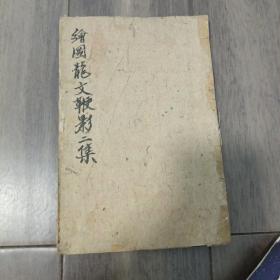 繪圖龍文鞭影二集